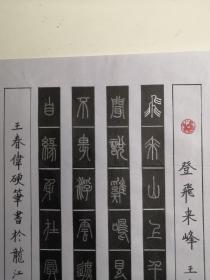 登飛来峰 王
飛來山上千
聞說雞鳴見
不畏浮雲遮
自緣身在最
王春偉硬筆書於龍江